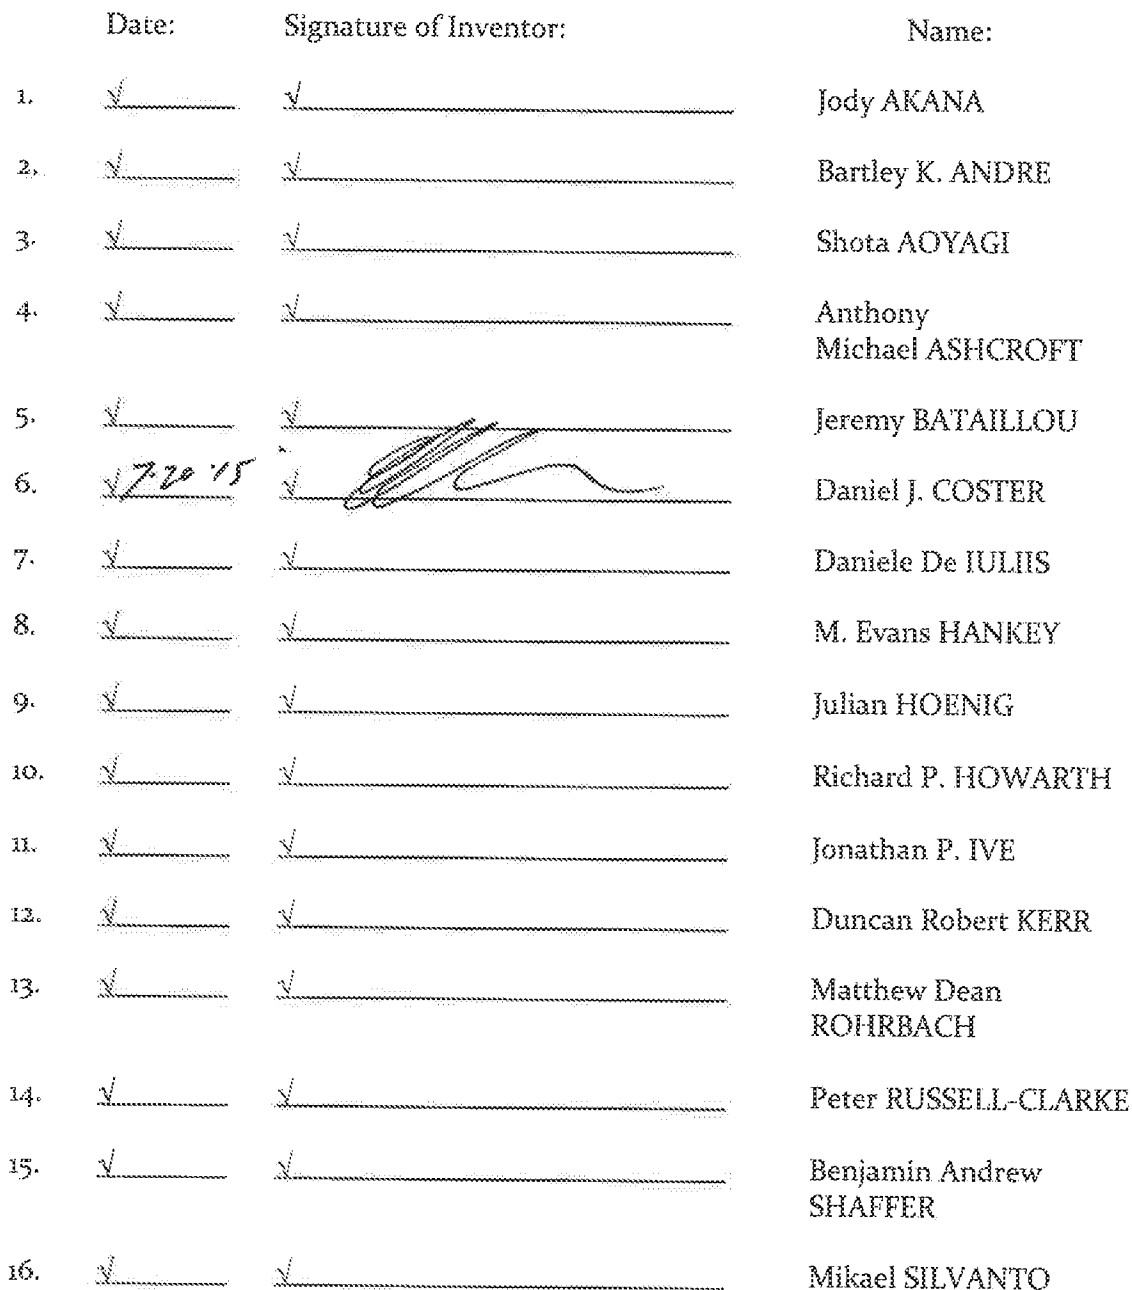 Date: Signature of Inventor: Name:
1. √ √ Jody AKANA
2. √ √ Bartley K. ANDRE
3. √ √ Shota AOYAGI
4. √ √ Anthony
Michael ASHCROFT
5. √ √ Jeremy BATAILLOU
6. √ 7-20 '15 √ Daniel J. COSTER
7. √ √ Daniele De IULIIS
8. √ √ M. Evans HANKEY
9. √ √ Julian HOENIG
10. √ √ Richard P. HOWARTH
11. √ √ Jonathan P. IVE
12. √ √ Duncan Robert KERR
13. √ √ Matthew Dean
ROHRBACH
14. √ √ Peter RUSSELL-CLARKE
15. √ √ Benjamin Andrew
SHAFFER
16. √ √ Mikael SILVANTO